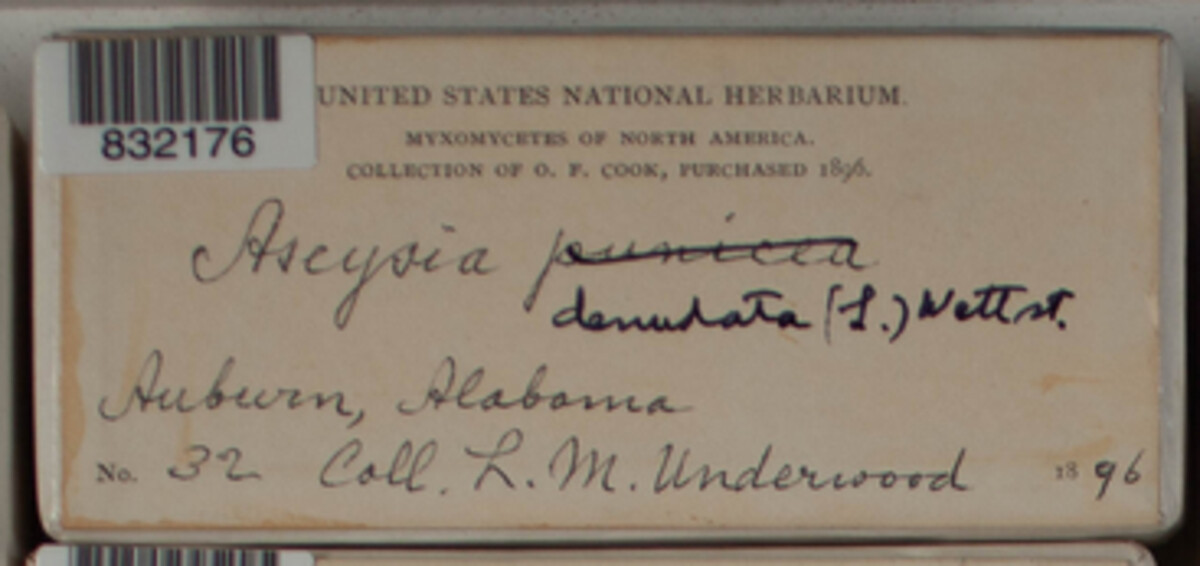 832176
UNITED STATES NATIONAL HERBARIUM.
MYXOMYCETES OF NORTH AMERICA.
COLLECTION OF O. F. COOK, PURCHASED 1896.
Arcysia punicea
denudata (L.) Wettst.
Auburn, Alabama
No. 32 Coll. L. M. Underwood 1896